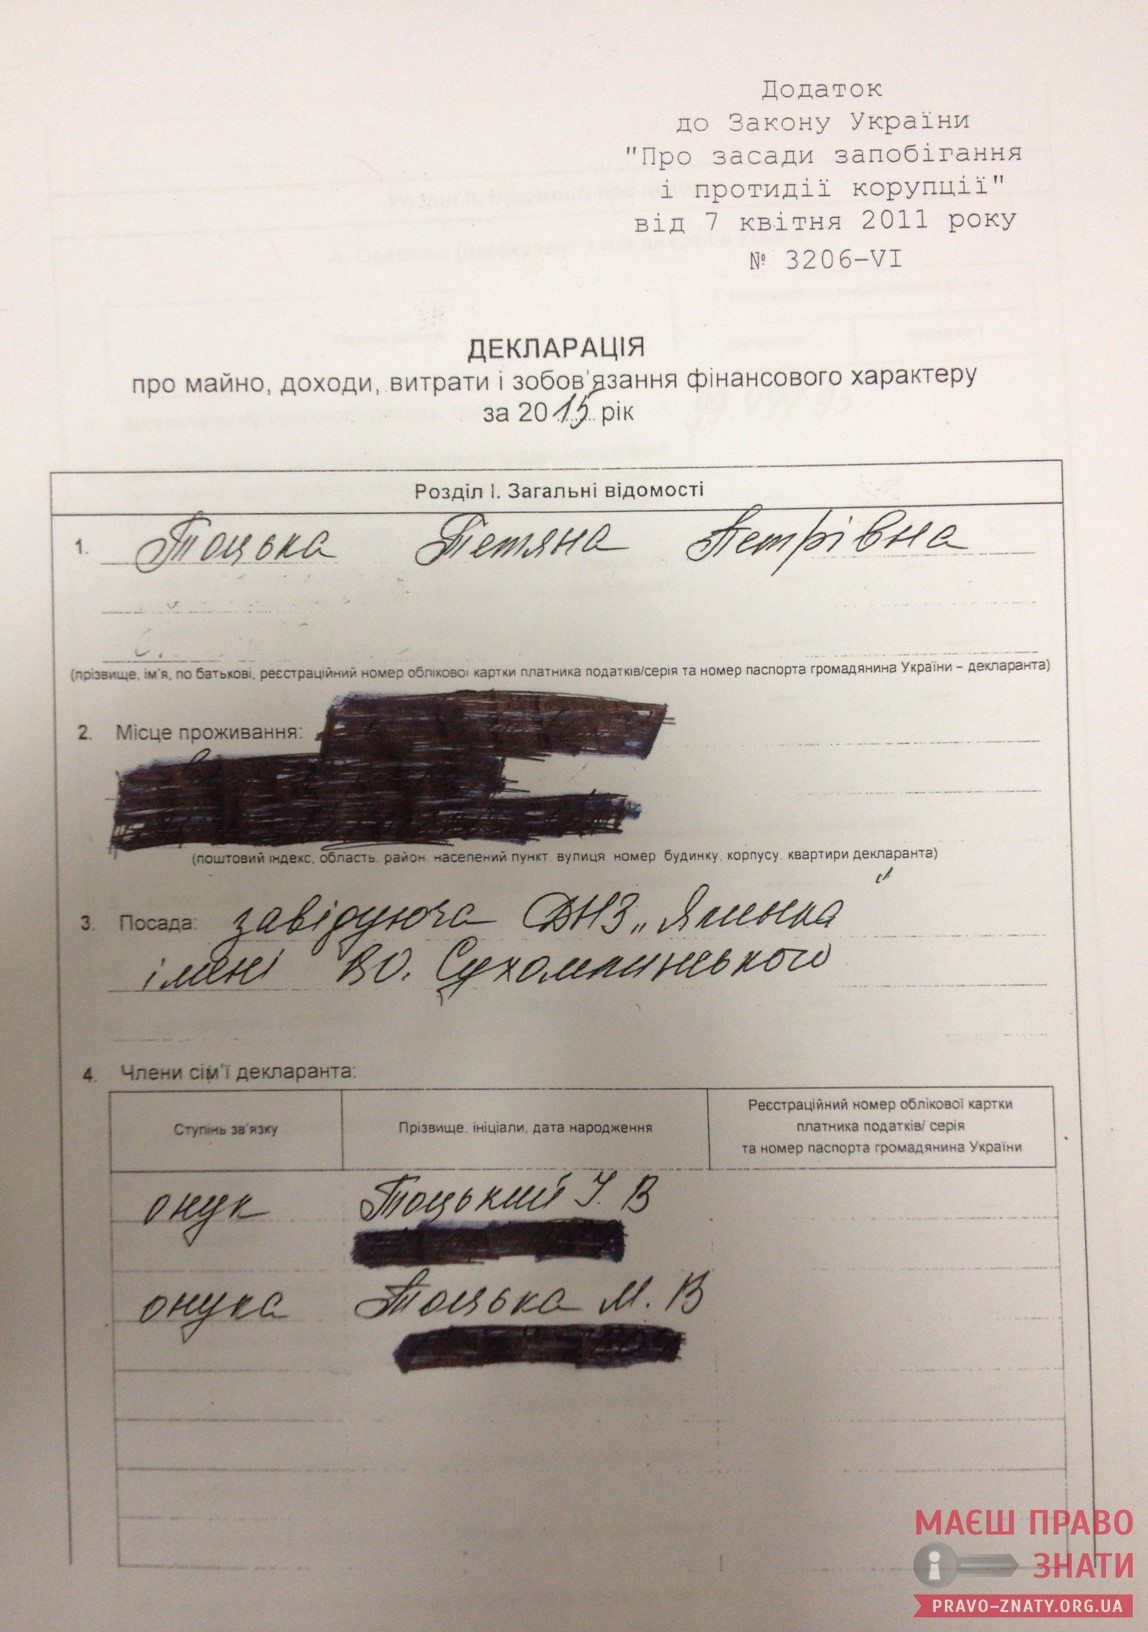 Додаток
до Закону України
"Про засади запобігання
і протидії корупції"
від 7 квітня 2011 року
№ 3206-VI
ДЕКЛАРАЦІЯ
про майно, доходи, витрати і зобов'язання фінансового характеру
за 2015 рік
Розділ І. Загальні відомості
1. Тоцька Тетяна Петрівна
(прізвище, ім'я, по батькові, реєстраційний номер облікової картки платника податків/серія та номер паспорта громадянина України – декларанта)
2. Місце проживання:
(поштовий індекс, область, район, населений пункт, вулиця, номер будинку, корпусу, квартири декларанта)
3. Посада: завідуюча ДНЗ „Ялинка"
імені В.О. Сухомлинського
4. Члени сім'ї декларанта:
Ступінь зв'язку
Прізвище, ініціали, дата народження
Реєстраційний номер облікової картки
платника податків/ серія
та номер паспорта громадянина України
онук Тоцький І. В
онука Тоцька М. В
МАЄШ ПРАВО
ЗНАТИ
PRAVO-ZNATY.ORG.UA